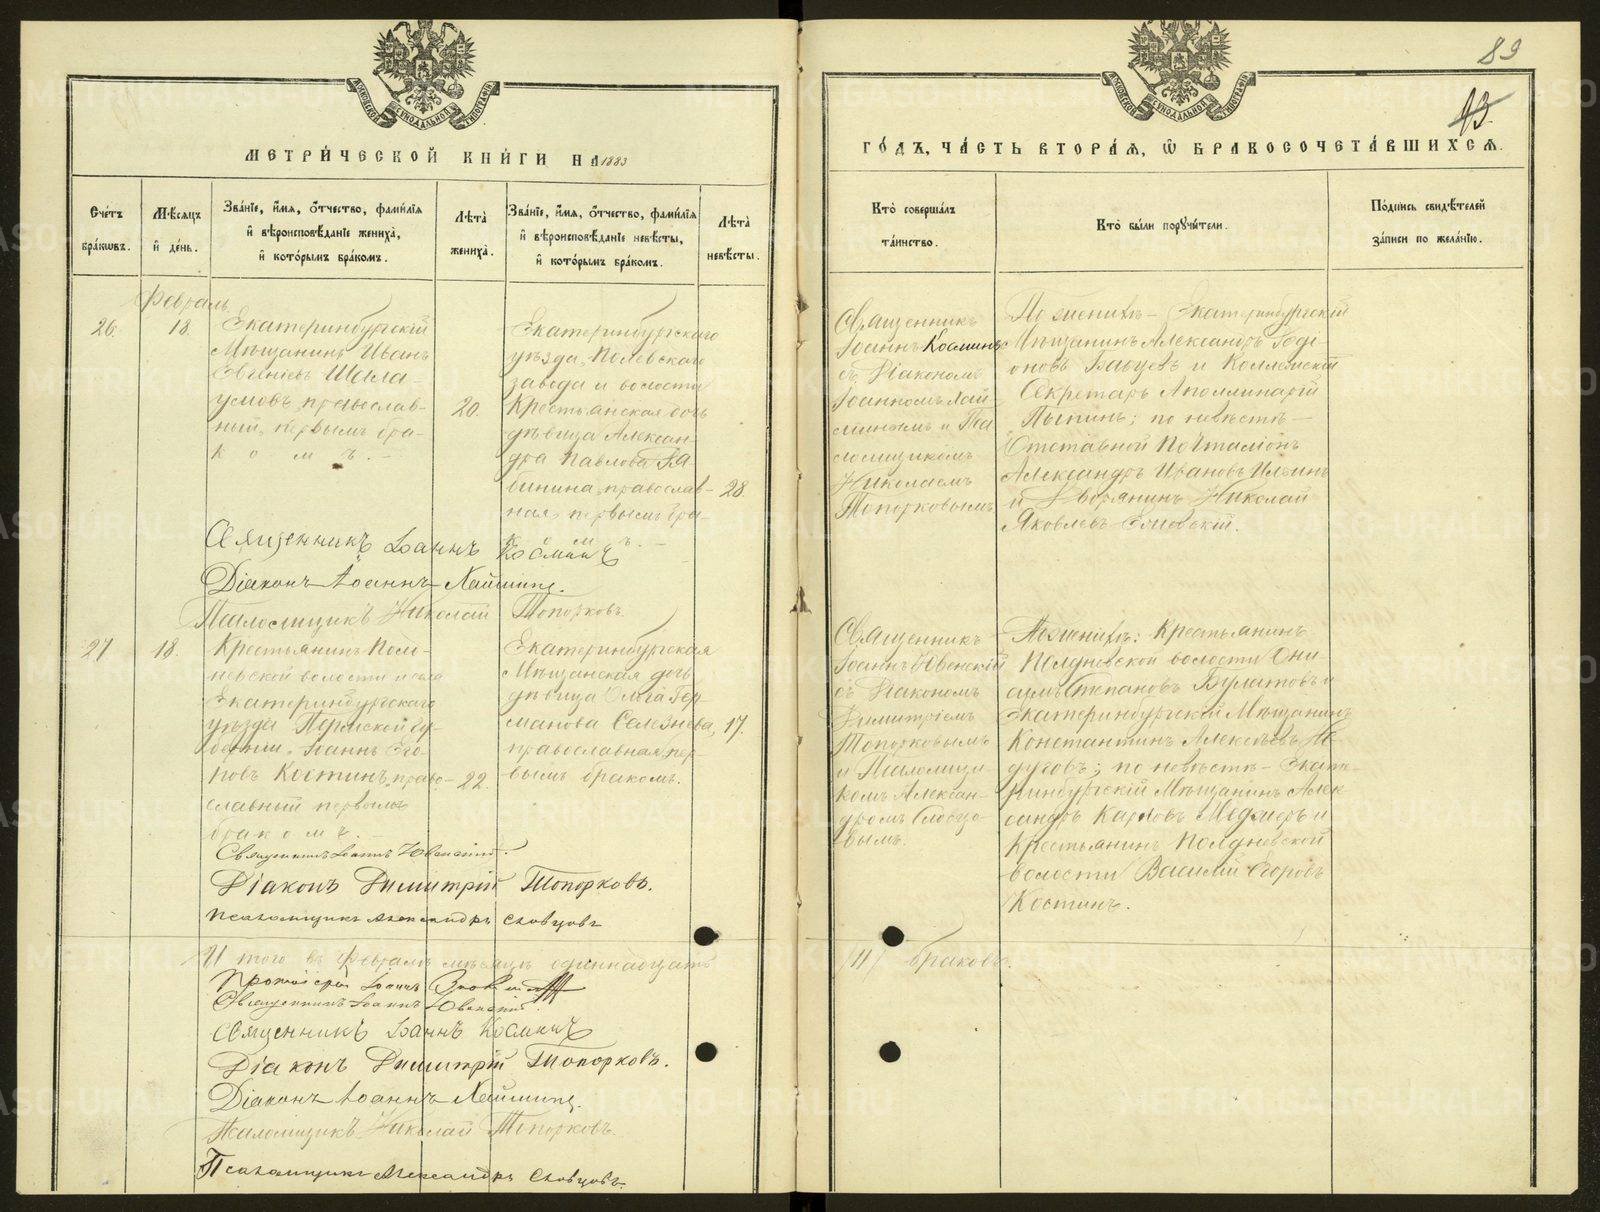 83
13.
МЕТРИЧЕСКОЙ КНИГИ НА 1883
ГОДЪ, ЧАСТЬ ВТОРАЯ, Ѡ БРАКОСОЧЕТАВШИХСЯ.
Счетъ браковъ.
Мѣсяцъ и день.
Званіе, имя, отчество, фамилія
и вѣроисповѣданіе жениха,
и которымъ бракомъ.
Лѣта жениха.
Званіе, имя, отчество, фамилія
и вѣроисповѣданіе невѣсты,
и которымъ бракомъ.
Лѣта невѣсты.
Кто совершалъ
таинство.
Кто были поручители.
Подпись свидѣтелей
записи по желанію.
Февраль
26.
18.
Екатеринбургскій
Мѣщанинъ Иванъ
Евгеніевъ Шала-
умовъ, православ-
ный, первымъ бра-
комъ.-
20.
Екатеринбургскаго
уѣзда, Полевскаго
завода и волости
Крестьянская дочь
дѣвица Алексан-
дра Павлова Ря-
бинина, православ-
ная, первымъ бра-
комъ.-
28.
Священникъ
Іоаннъ Косминъ
съ Діакономъ
Іоанномъ Хай-
минымъ и Пса
ломщикомъ
Николаемъ
Топорковымъ
По женихѣ - Екатеринбургскій
Мѣщанинъ Александръ Роді-
оновъ и Коллежскій
Секретарь Аполлинарій
Пыпинъ; по невѣстѣ -
Отставной Почталіонъ
Александръ Ивановъ Ильинъ
и Дворянинъ Николай
Яковлевъ
Священникъ Іоаннъ Косминъ
Діаконъ Іоаннъ Хайминъ.
Псаломщикъ Николай Топорковъ.
27
18.
Крестьянинъ Пол-
невской волости и села
Екатеринбургскаго
уѣзда Пермской гу-
берніи, Іоаннъ Его-
ровъ Костинъ, право-
славный первымъ
бракомъ.-
22.
Екатеринбургская
Мѣщанская дочь
дѣвица Ольга Гер-
манова Селезнева,
православная, пер-
вымъ бракомъ.
17.
Священникъ
Іоаннъ Ювенскій
съ Діакономъ
Димитріемъ
Топорковымъ
и Псаломщи-
комъ Алексан-
дромъ Словцо-
вымъ.
По женихѣ: Крестьянинъ
Полдневской волости Они-
симъ Степановъ Булатовъ и
Екатеринбургскій Мѣщанинъ
Константинъ Алексѣевъ Не-
дуговъ; по невѣстѣ - Екате-
ринбургскій Мѣщанинъ Алек
сандръ Карповъ Медмеръ и
Крестьянинъ Полдневской
волости Василій Егоровъ
Костинъ.
Священникъ Іоаннъ Ювенскій.
Діаконъ Димитрій Топорковъ.
Псаломщикъ Александръ Словцовъ
И того въ Февралѣ мѣсяцѣ одиннадцать
/11/ браковъ.
Протоіерей Іоаннъ
Священникъ Іоаннъ Ювенскій
Священникъ Іоаннъ Косминъ
Діаконъ Димитрій Топорковъ.
Діаконъ Іоаннъ Хайминъ.
Псаломщикъ Николай Топорковъ.
Псаломщикъ Александръ Словцовъ.